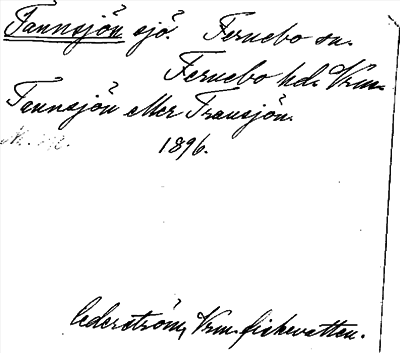 Tannsjön sjö. Fernebo sn.
Fernebo hd. Vrm.
Tannsjön eller Transjön.
1896.
Cederström, Vrm. fiskevatten.